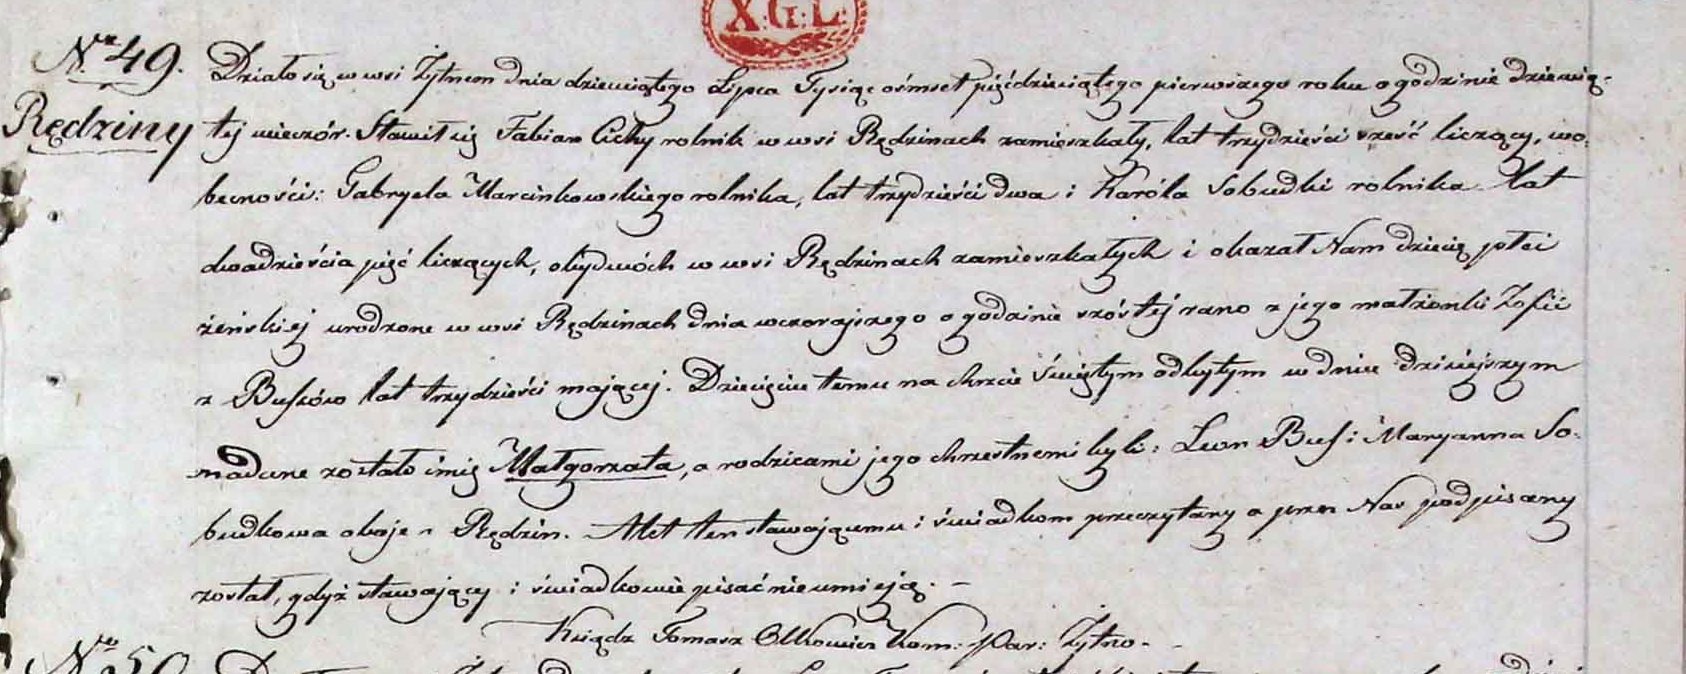 X:G:L:
Nr 49.
Rędziny
Działo się w wsi Żytnem dnia dziewiątego Lipca Tysiąc ośmset pięćdziesiątego pierwszego roku o godzinie dziewią-
tej wieczór. Stawił się Fabian Cichy rolnik w wsi Rędzinach zamieszkały, lat trzydzieści sześć liczący, w o-
becności: Gabryela Marcinkowskiego rolnika, lat trzydzieści dwa i Karóla Sobudki rolnika lat
dwadzieścia pięć liczących, obydwóch w wsi Rędzinach zamieszkałych i okazał Nam dziecię płci
żeńskiej urodzone w wsi Rędzinach dnia wczorajszego o godzinie szóstej rano z jego małżonki Zofii
z Busiów lat trzydzieści mającej. Dziecięciu temu na chrzcie świętym odbytym w dniu dzisiejszym
nadane zostało imię Małgorzata, a rodzicami jego chrzestnemi byli: Leon Buś i Maryanna So-
budkowa oboje z Rędzin. Akt ten stawającemu i świadkom przeczytany a przez Nas podpisany
został, gdyż stawający i świadkowie pisać nieumieją. –
Ksiądz Tomasz Kom: Par: Żytno. -
Nr 50